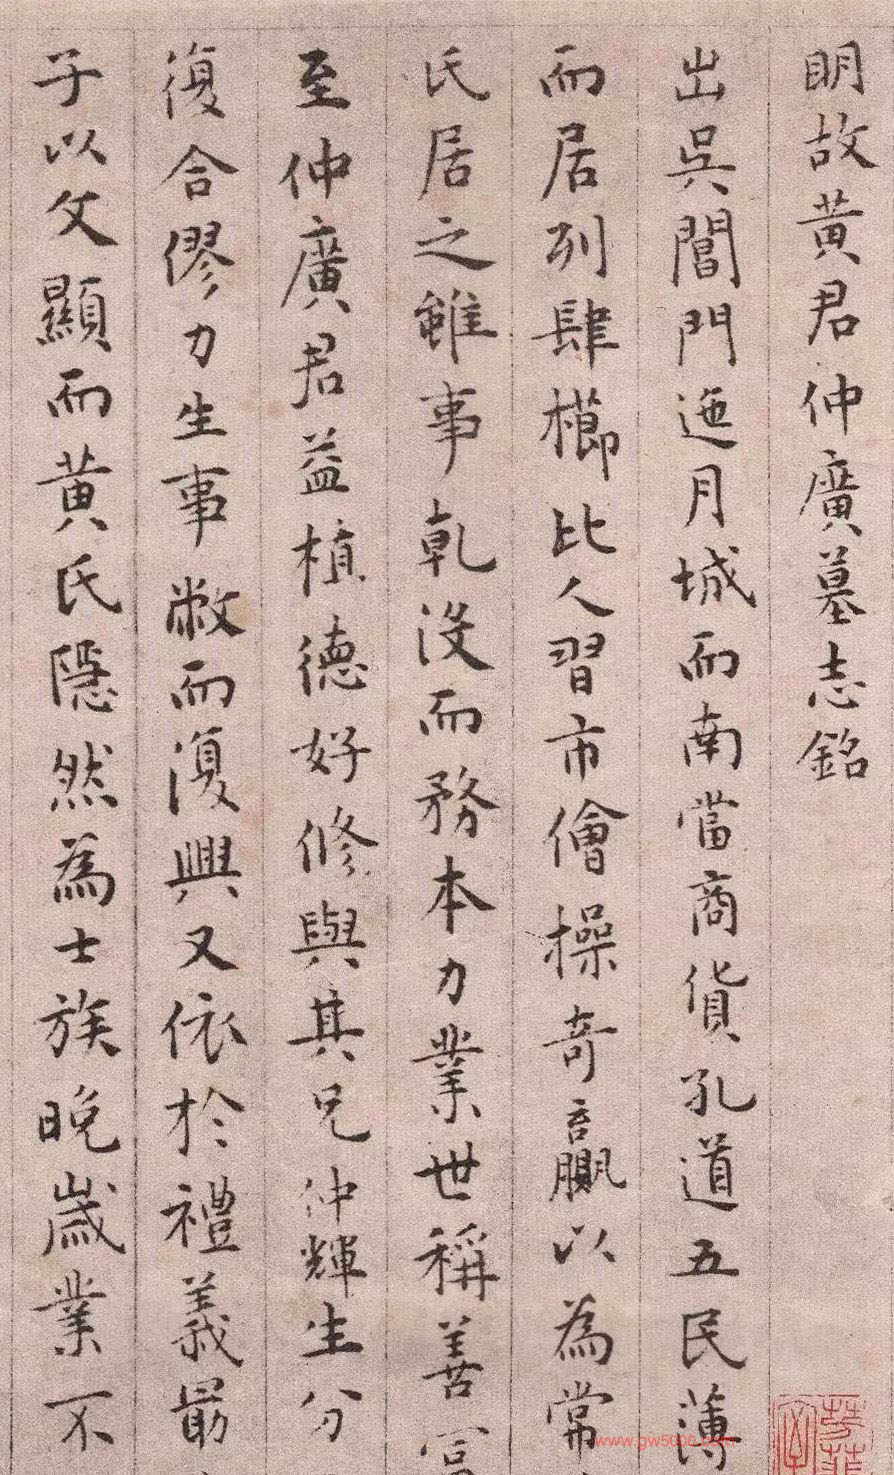 明故黃君仲廣墓志銘
出吳閶門迤月城而南當商貨孔道五民薄
而居列肆櫛比人習市儈操奇贏以為常
氏居之雖事乾沒而務本力業世稱善富
至仲廣君益植德好修與其兄仲輝生分
復合僇力生事敝而復興又依於禮義最
子以文顯而黃氏隱然為士族晚歲業不
www.gw5000.com